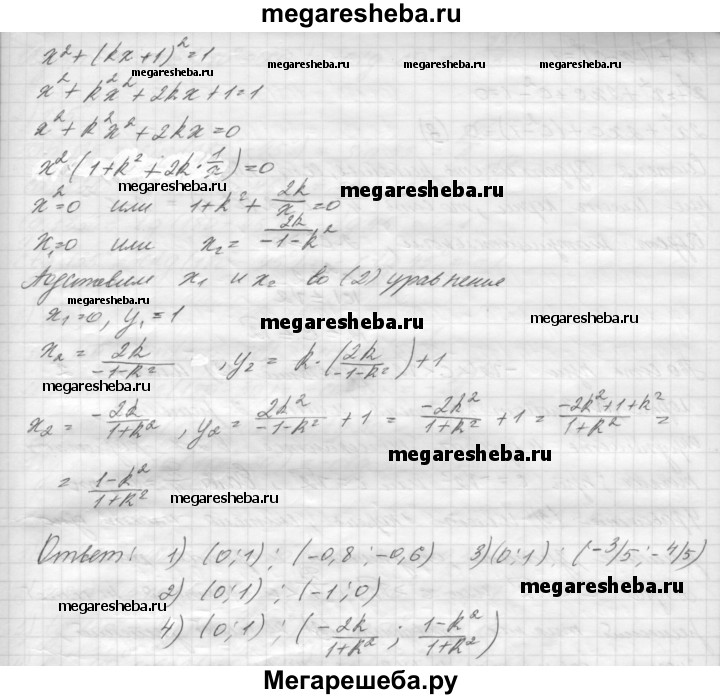 megaresheba.ru
x² + (kx+1)² = 1
megaresheba.ru megaresheba.ru
x² + k²x² + 2kx + 1 = 1
x² + k²x² + 2kx = 0
x² (1 + k² + 2k · 1/x) = 0
megaresheba.ru megaresheba.ru
x² = 0 или 1 + k² + 2k/x = 0
x₁ = 0 или x₂ = 2k/(-1-k²)
Подставим x₁ и x₂ во (2) уравнение
megaresheba.ru
x₁ = 0, y₁ = 1
megaresheba.ru megaresheba.ru
x₂ = 2k/(-1-k²) , y₂ = k · (2k/(-1-k²)) + 1
megaresheba.ru
x₂ = -2k/(1+k²) , y₂ = 2k²/(-1-k²) + 1 = -2k²/(1+k²) + 1 = (-2k²+1+k²)/(1+k²) =
megaresheba.ru
= (1-k²)/(1+k²)
megaresheba.ru megaresheba.ru
Ответ: 1) (0;1) ; (-0,8 ; -0,6) 3) (0;1) ; (-3/5 ; -4/5)
2) (0;1) ; (-1;0)
megaresheba.ru megaresheba.ru
4) (0;1) ; (-2k/(1+k²) ; (1-k²)/(1+k²))
megaresheba.ru
Мегарешеба.ру